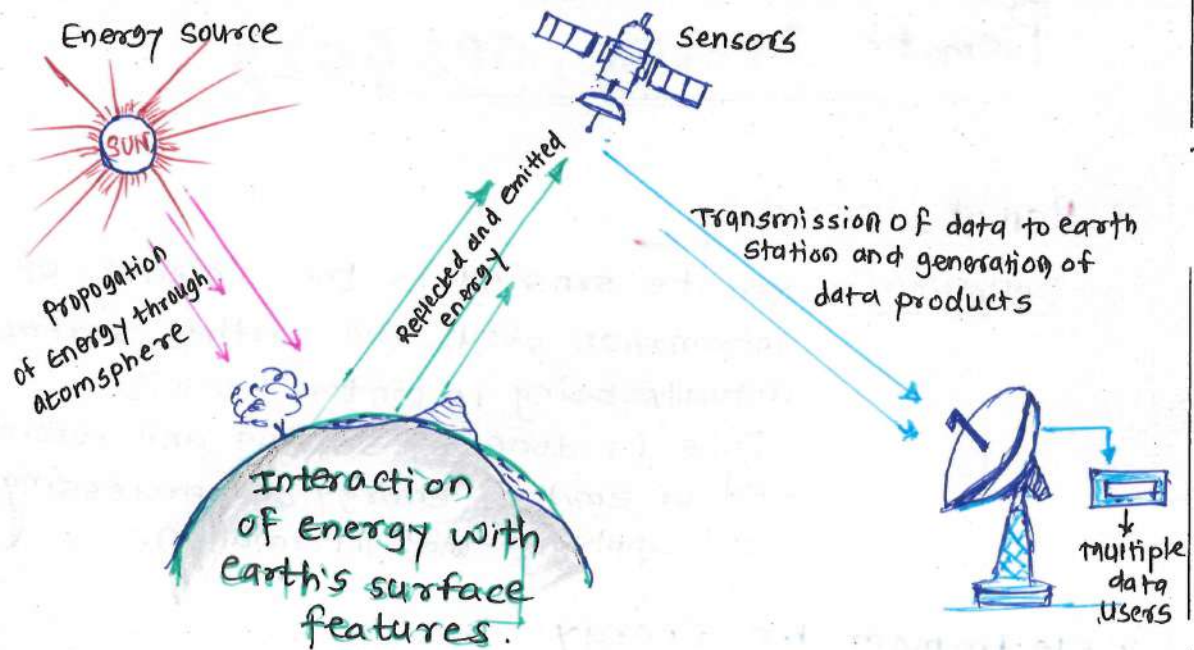 Energy source
SUN
sensors
Propogation
of Energy through
atomsphere
Replected and emitted
energy
Transmission of data to earth
station and generation of
data products
Interaction
of energy with
earth's surface
features.
multiple
data
users